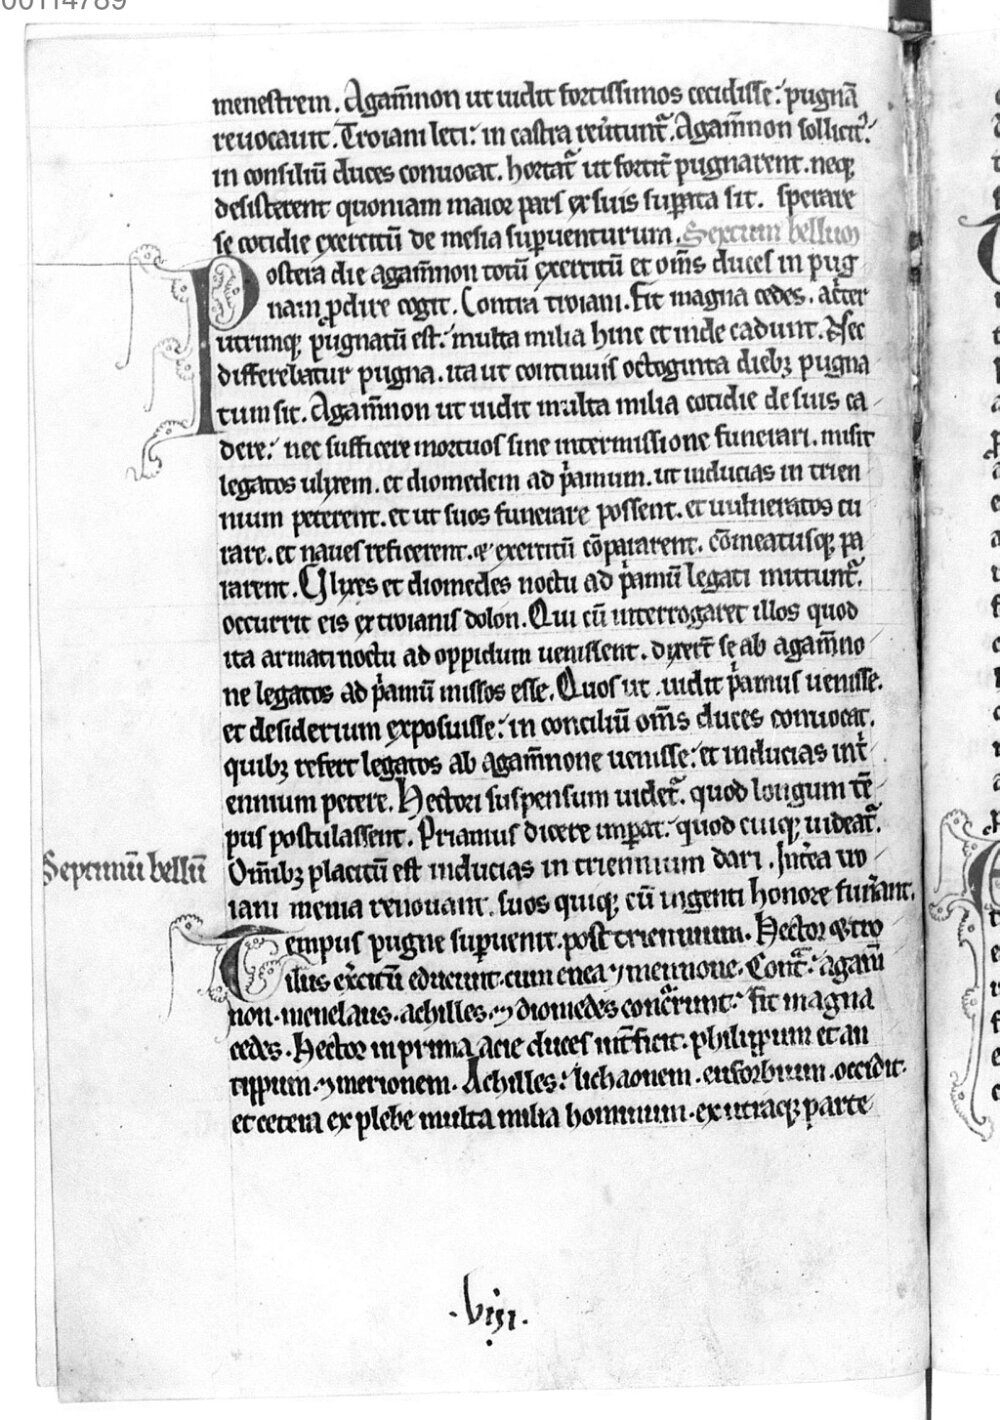 00114789
menestrem. Agam̄non ut uidit fortissimos cecidisse: pugnā
reuocauit. Troiani leti: in castra reũtunt᷑. Agam̄non sollicit᷑:
in consiliū duces conuocat. hortat᷑ ut fortit᷑ pugnarent. neq;
desisterent quoniam maior pars ex suis suꝑata sit. sperare
se cotidie exercitū de mesia suꝑuenturum. Sextum bellum
Postera die agam̄mon totū exercitū et om̄s duces in pug
nam ꝓdire cogit. Contra troiani. Fit magna cedes. acͥter
utrimq; pugnatū est: multa milia hinc et inde cadunt. Nec
differebatur pugna. ita ut continuis octoginta dieb; pugna
tum sit. Agam̄non ut uidit multa milia cotidie de suis ca
dere: nec sufficere mortuos sine intermissione funerari. misit
legatos ulyxem. et diomedem ad pͥamum. ut inducias in trien
nium peterent. et ut suos funerare possent. et uulneratos cu
rare. et naues reficerent. et exercitū cōpararent. cōmeatusq; pa
rarent. Ulyxes et diomedes noctu ad pͥamū legati mittunt᷑.
occurrit eis ex troianis dolon. Qui cū interrogaret illos quod
ita armati noctu ad oppidum uenissent. dixert̄ se ab agam̄no
ne legatos ad pͥamū missos esse. Quos ut uidit pͥamus uenisse.
et desiderium exposuisse: in conciliū om̄s duces conuocat.
quib; refert legatos ab agam̄none uenisse: et inducias int᷑
ennium petere. Hectori suspensum uidet᷑. quod longum tē
pus postulassent. Priamus dicere imꝑat: quod cuiq; uideat᷑.
Om̄ib; placitū est inducias in triennium dari. Int᷑ea tro
Septimū bellū
iani menia renouant. suos quiq; cū ingenti honore funͥant.
Tempus pugne suꝑuenit. post triennium. Hector et tro
ilus ex̄citū educunt. cum enea ⁊ mennone. Cont͛: agam̄
non. menelaus. achilles. ⁊ diomedes concͥrunt: fit magna
cedes. Hector in prima acie duces int̄ficit. philippum et an
tippum. ⁊ merionem. Achilles: lichaonem. euforbium. occidit.
et cetera ex plebe multa milia hominum. ex utraq; parte
.viii.